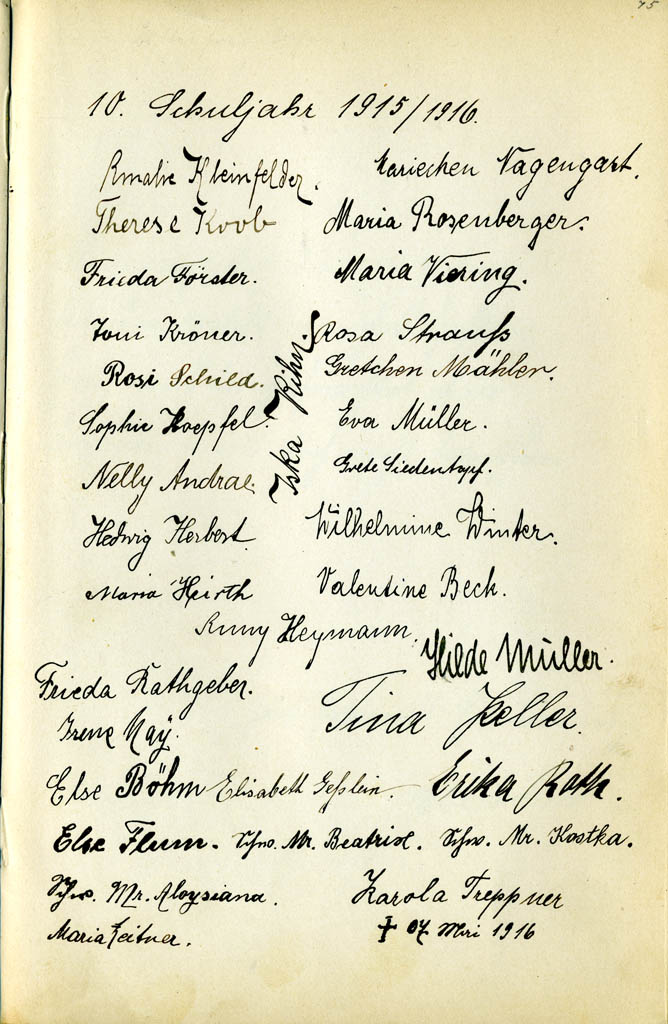 75
10. Schuljahr 1915/1916.
Amalie Kleinfelder. Mariechen Nagengast.
Therese Koob Maria Rosenberger.
Frieda Förster. Maria Viering.
Toni Kröner. Rosa Strauß
Iska Kihn.
Rosi Schild. Gretchen Mähler.
Sophie Hoepfel. Eva Müller.
Nelly Andrae. Grete Siedentopf.
Hedwig Herbert Wilhelmine Winter.
Maria Heirth Valentine Beck.
Anny Heymann.
Hilde Müller.
Frieda Rathgeber.
Irene May. Tina Keller.
Else Böhm Elisabeth Geßlein. Erika Roth.
Else Flum. Schw. Mr. Beatrix. Schw. Mr. Kostka.
Schw. Mr. Aloysiana. Karola Treppner
Maria Zeitner. † 1916